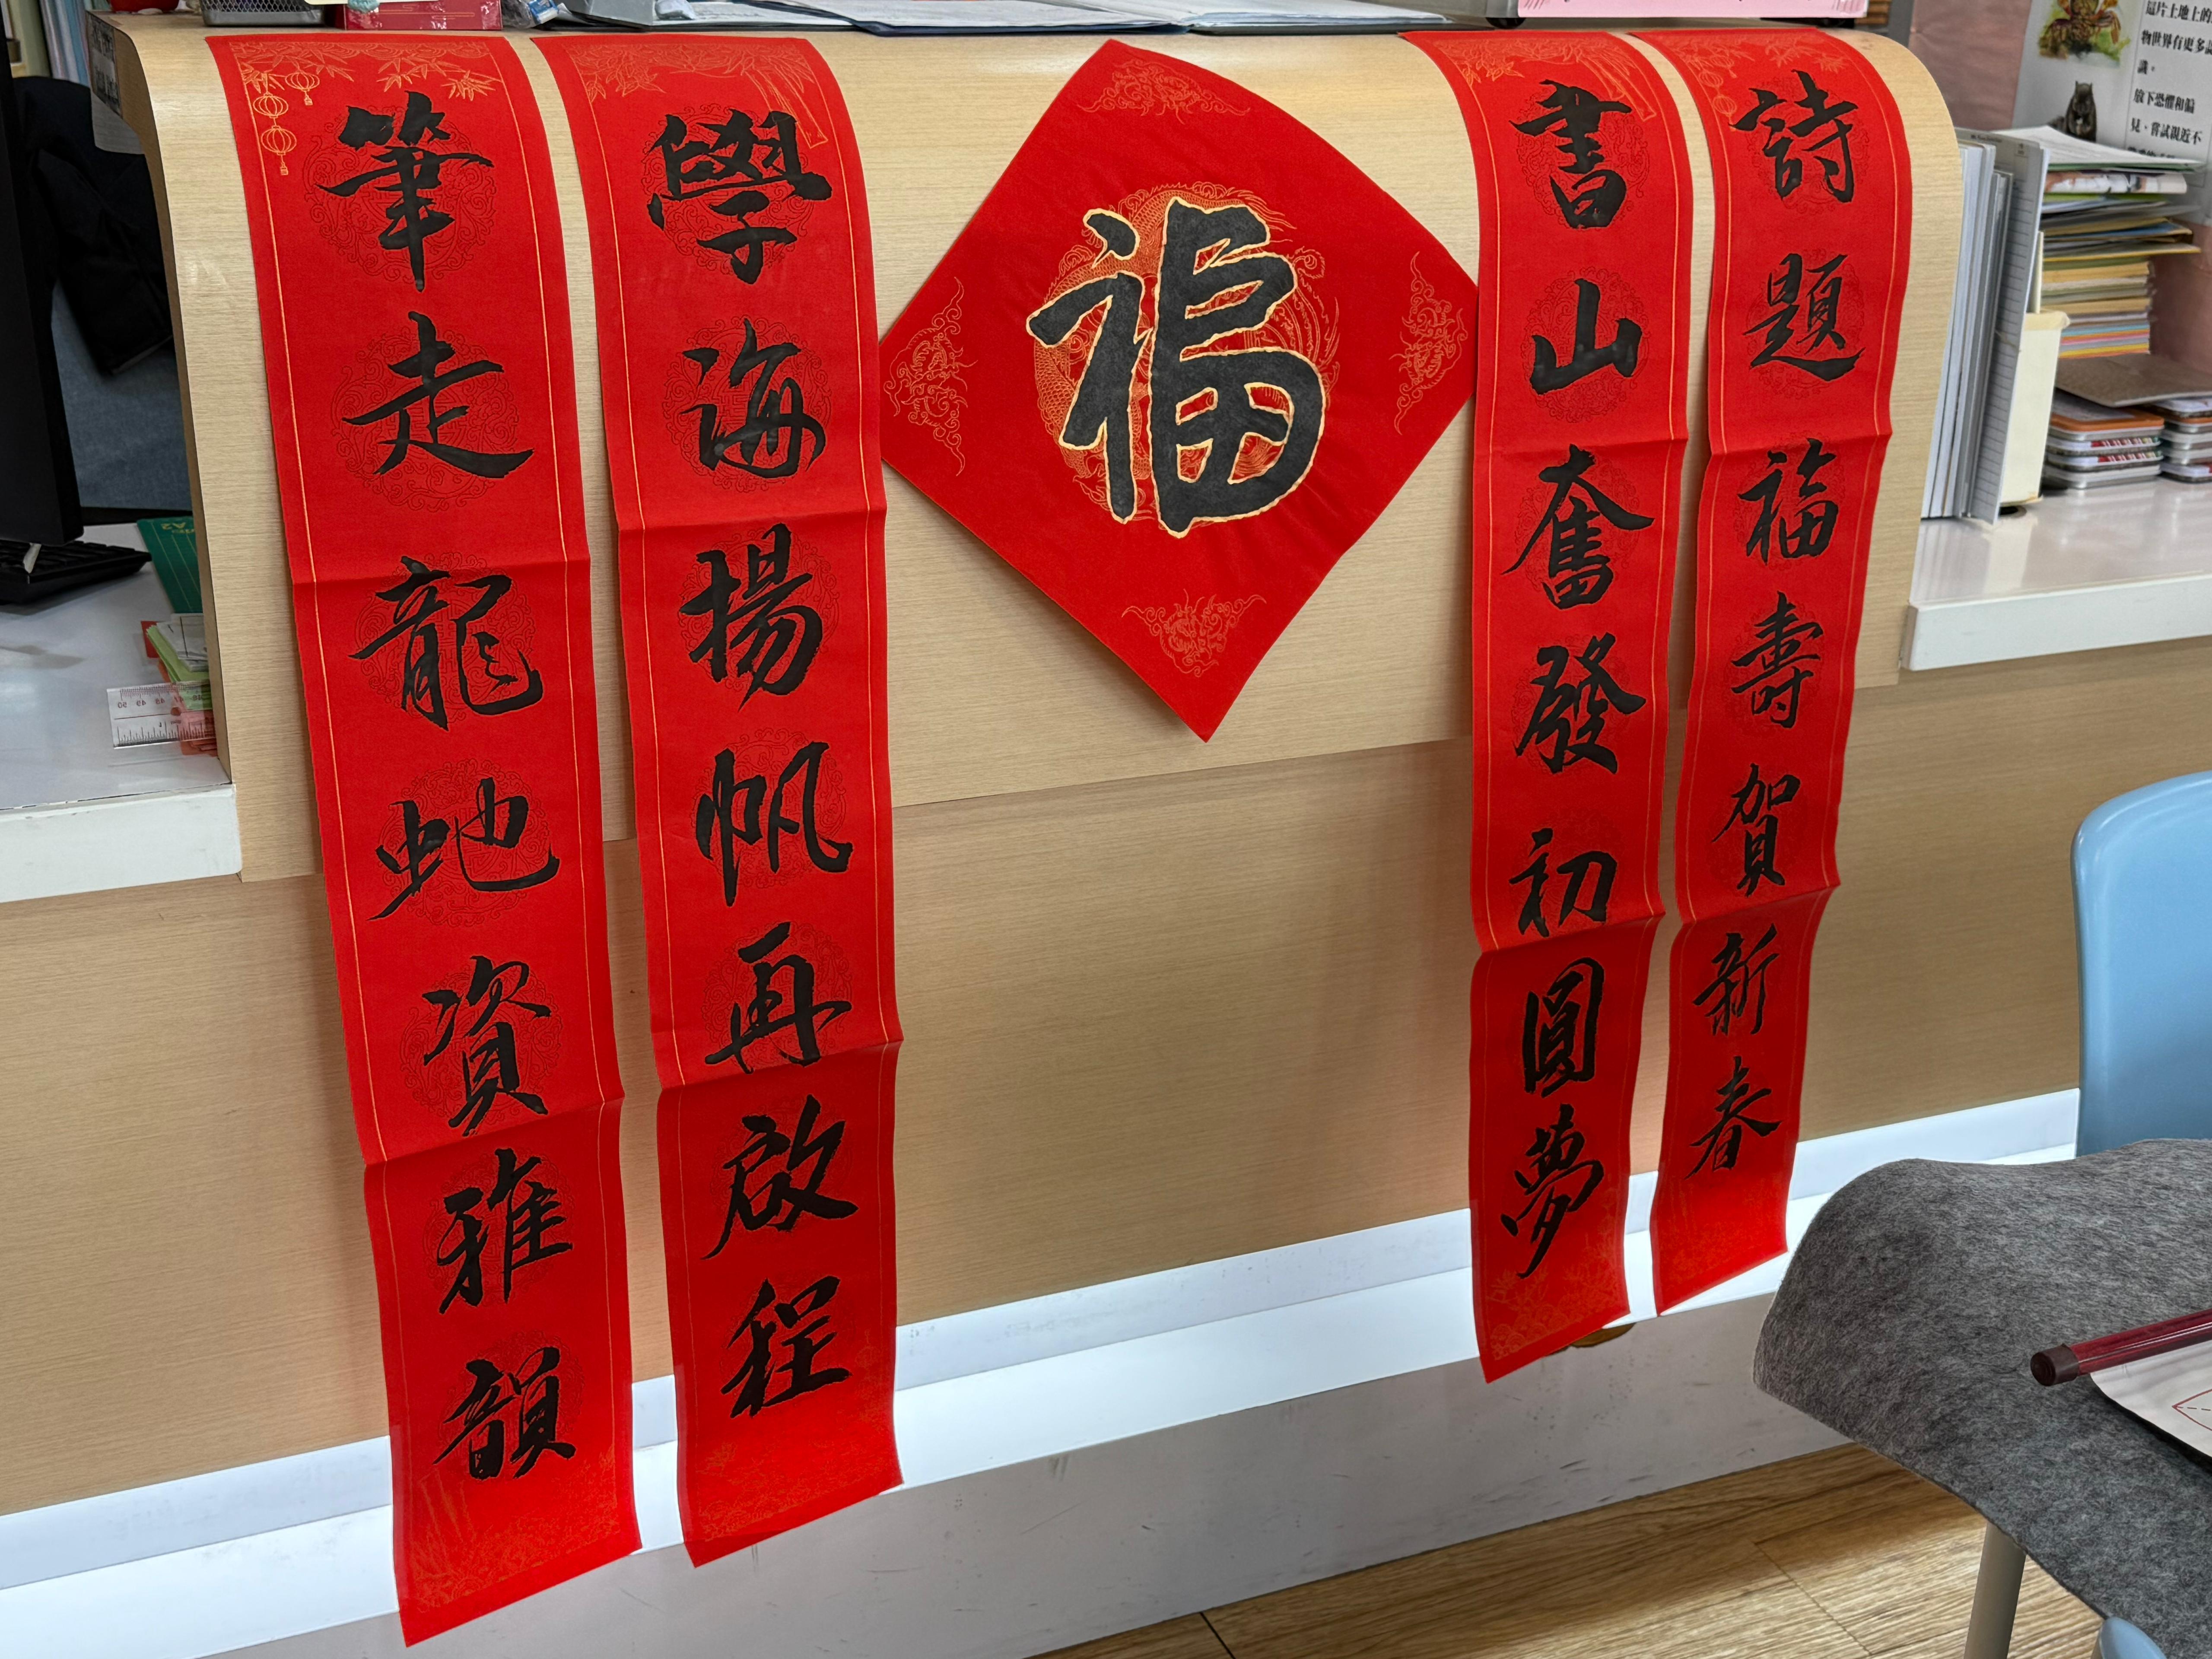 詩題福壽賀新春
書山奮發初圓夢
福
學海揚帆再啟程
筆走龍虵資雅韻
這片土地上的
物世界有更多認
識。
放下恐懼和偏
見,嘗試親近不